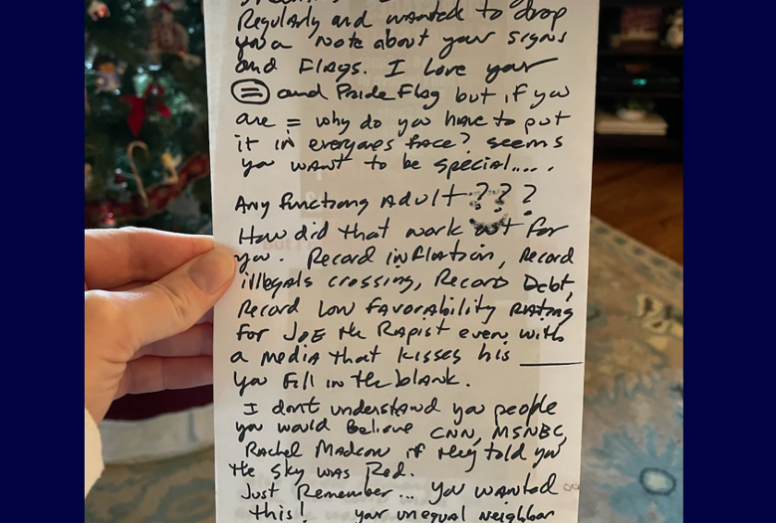 Regularly and wanted to drop
you a note about your signs
and Flags. I Love your
= and Pride Flag but if you
are = why do you have to put
it in everyones face? seems
you want to be special.....
Any functiong Adult???
How did that work out for
you. Record inflation, Record
illegals crossing, Record Debt,
Record Low favorability Rating
for JOE the Rapist even with
a media that kisses his ______
you fill in the blank.
I dont understand you people
you would believe CNN, MSNBC,
Rachel Madcow if they told you
the sky was Red.
Just Remember... you wanted
this! your unequal neighbor